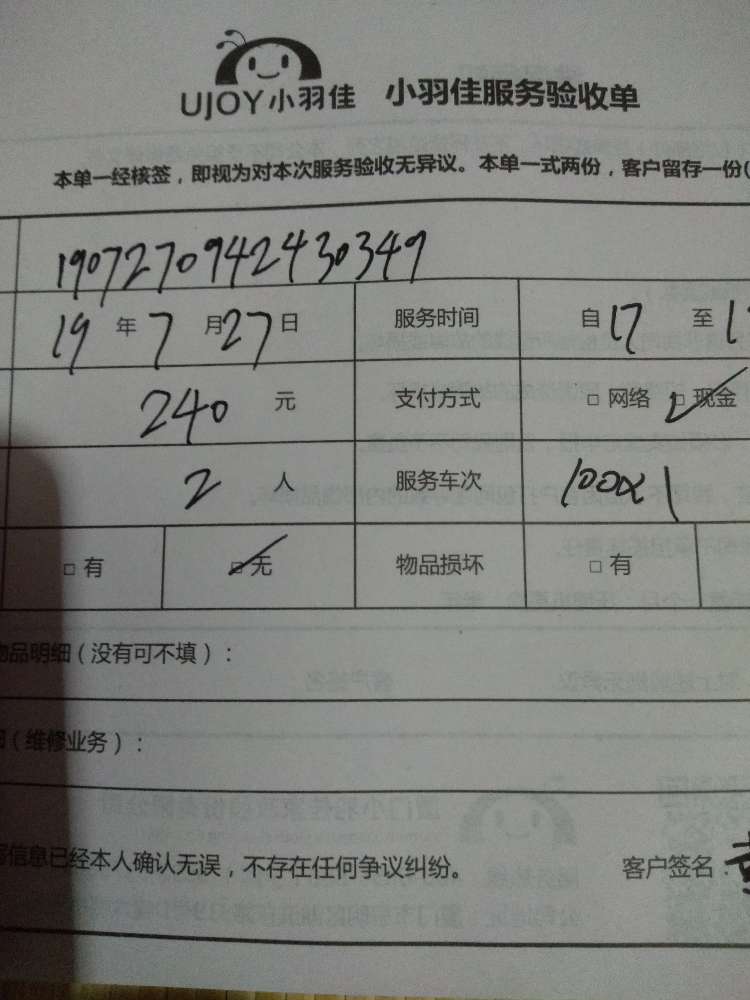 UJOY小羽佳 小羽佳服务验收单
本单一经核签，即视为对本次服务验收无异议。本单一式两份，客户留存一份(
190727094243 0349
19 年 7 月 27 日 服务时间 自 17 至
240 元 支付方式 □ 网络 □ 现金
2 人 服务车次 100x1
□ 有 □ 无 物品损坏 □ 有
物品明细（没有可不填）：
（维修业务）：
信息已经本人确认无误，不存在任何争议纠纷。 客户签名：